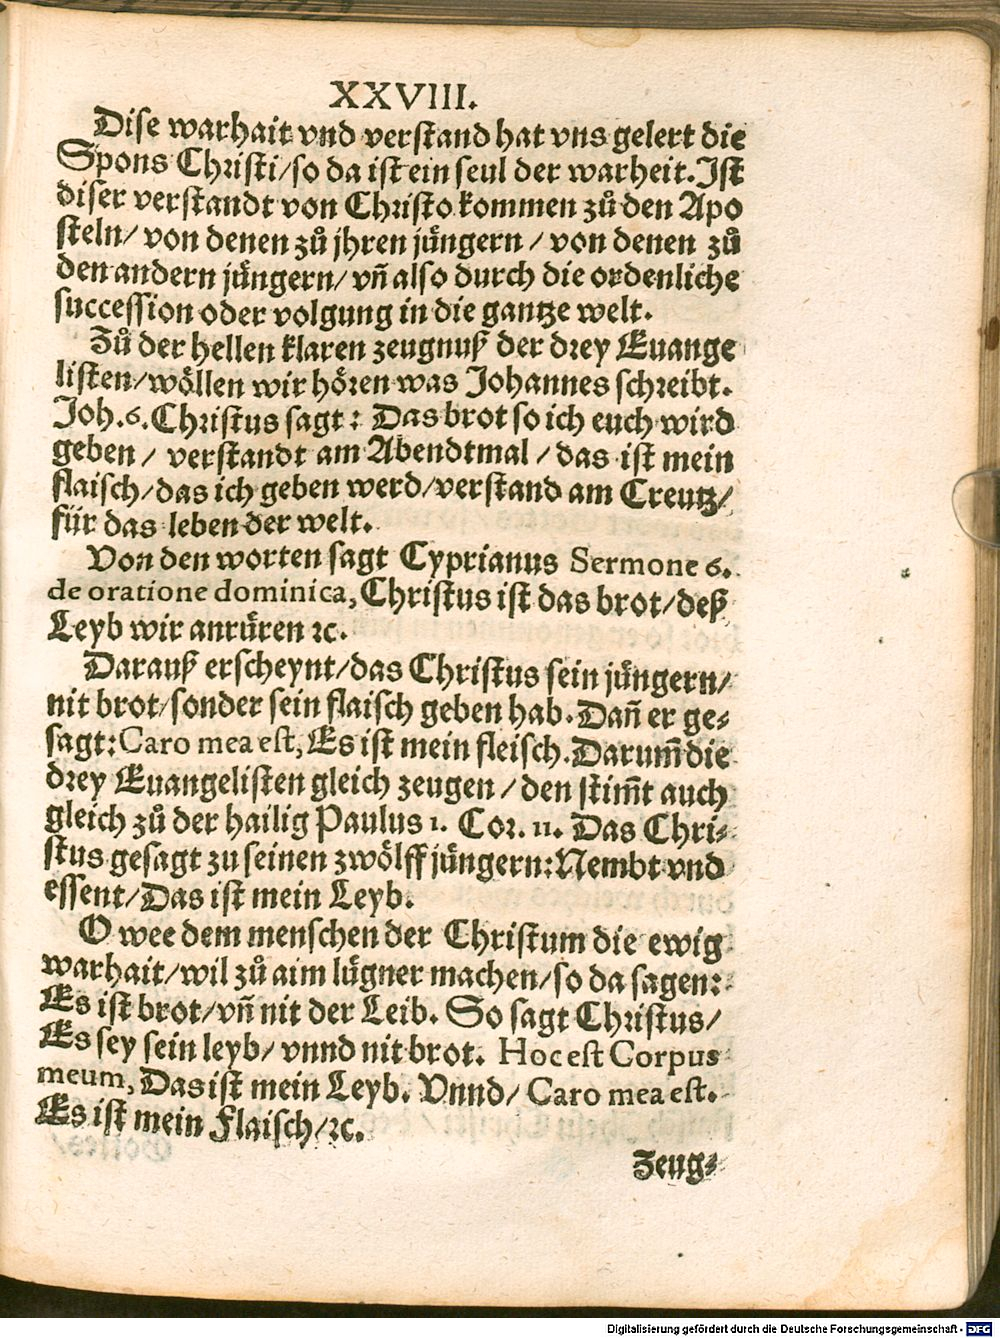 XXVIII.
Dise warhait vnd verstand hat vns gelert die
Spons Christi/so da ist ein seul der warheit. Ist
diser verstandt von Christo kommen zů den Apo
steln/ von denen zů jhren jüngern / von denen zů
den andern jüngern/ vñ also durch die ordenliche
succession oder volgung in die gantze welt.
Zů der hellen klaren zeugnuß der drey Euange
listen/wöllen wir hören was Johannes schreibt.
Joh.6. Christus sagt: Das brot so ich euch wird
geben / verstandt am Abendtmal / das ist mein
flaisch/das ich geben werd/verstand am Creutz/
für das leben der welt.
Von den worten sagt Cyprianus Sermone 6.
de oratione dominica, Christus ist das brot/deß
Leyb wir anrüren ꝛc.
Darauß erscheynt/das Christus sein jüngern/
nit brot/sonder sein flaisch geben hab. Dañ er ge⸗
sagt: Caro mea est, Es ist mein fleisch. Darum̃ die
drey Euangelisten gleich zeugen / den stim̃t auch
gleich zů der hailig Paulus 1. Cor. 11. Das Chri⸗
stus gesagt zu seinen zwölff jüngern: Nembt vnd
essent/Das ist mein Leyb.
O wee dem menschen der Christum die ewig
warhait/wil zů aim lügner machen/so da sagen:
Es ist brot/vñ nit der Leib. So sagt Christus/
Es sey sein leyb/ vnnd nit brot. Hoc est Corpus
meum, Das ist mein Leyb. Vnnd/ Caro mea est.
Es ist mein Flaisch/ꝛc.
Zeug⸗
Digitalisierung gefördert durch die Deutsche Forschungsgemeinschaft - DFG